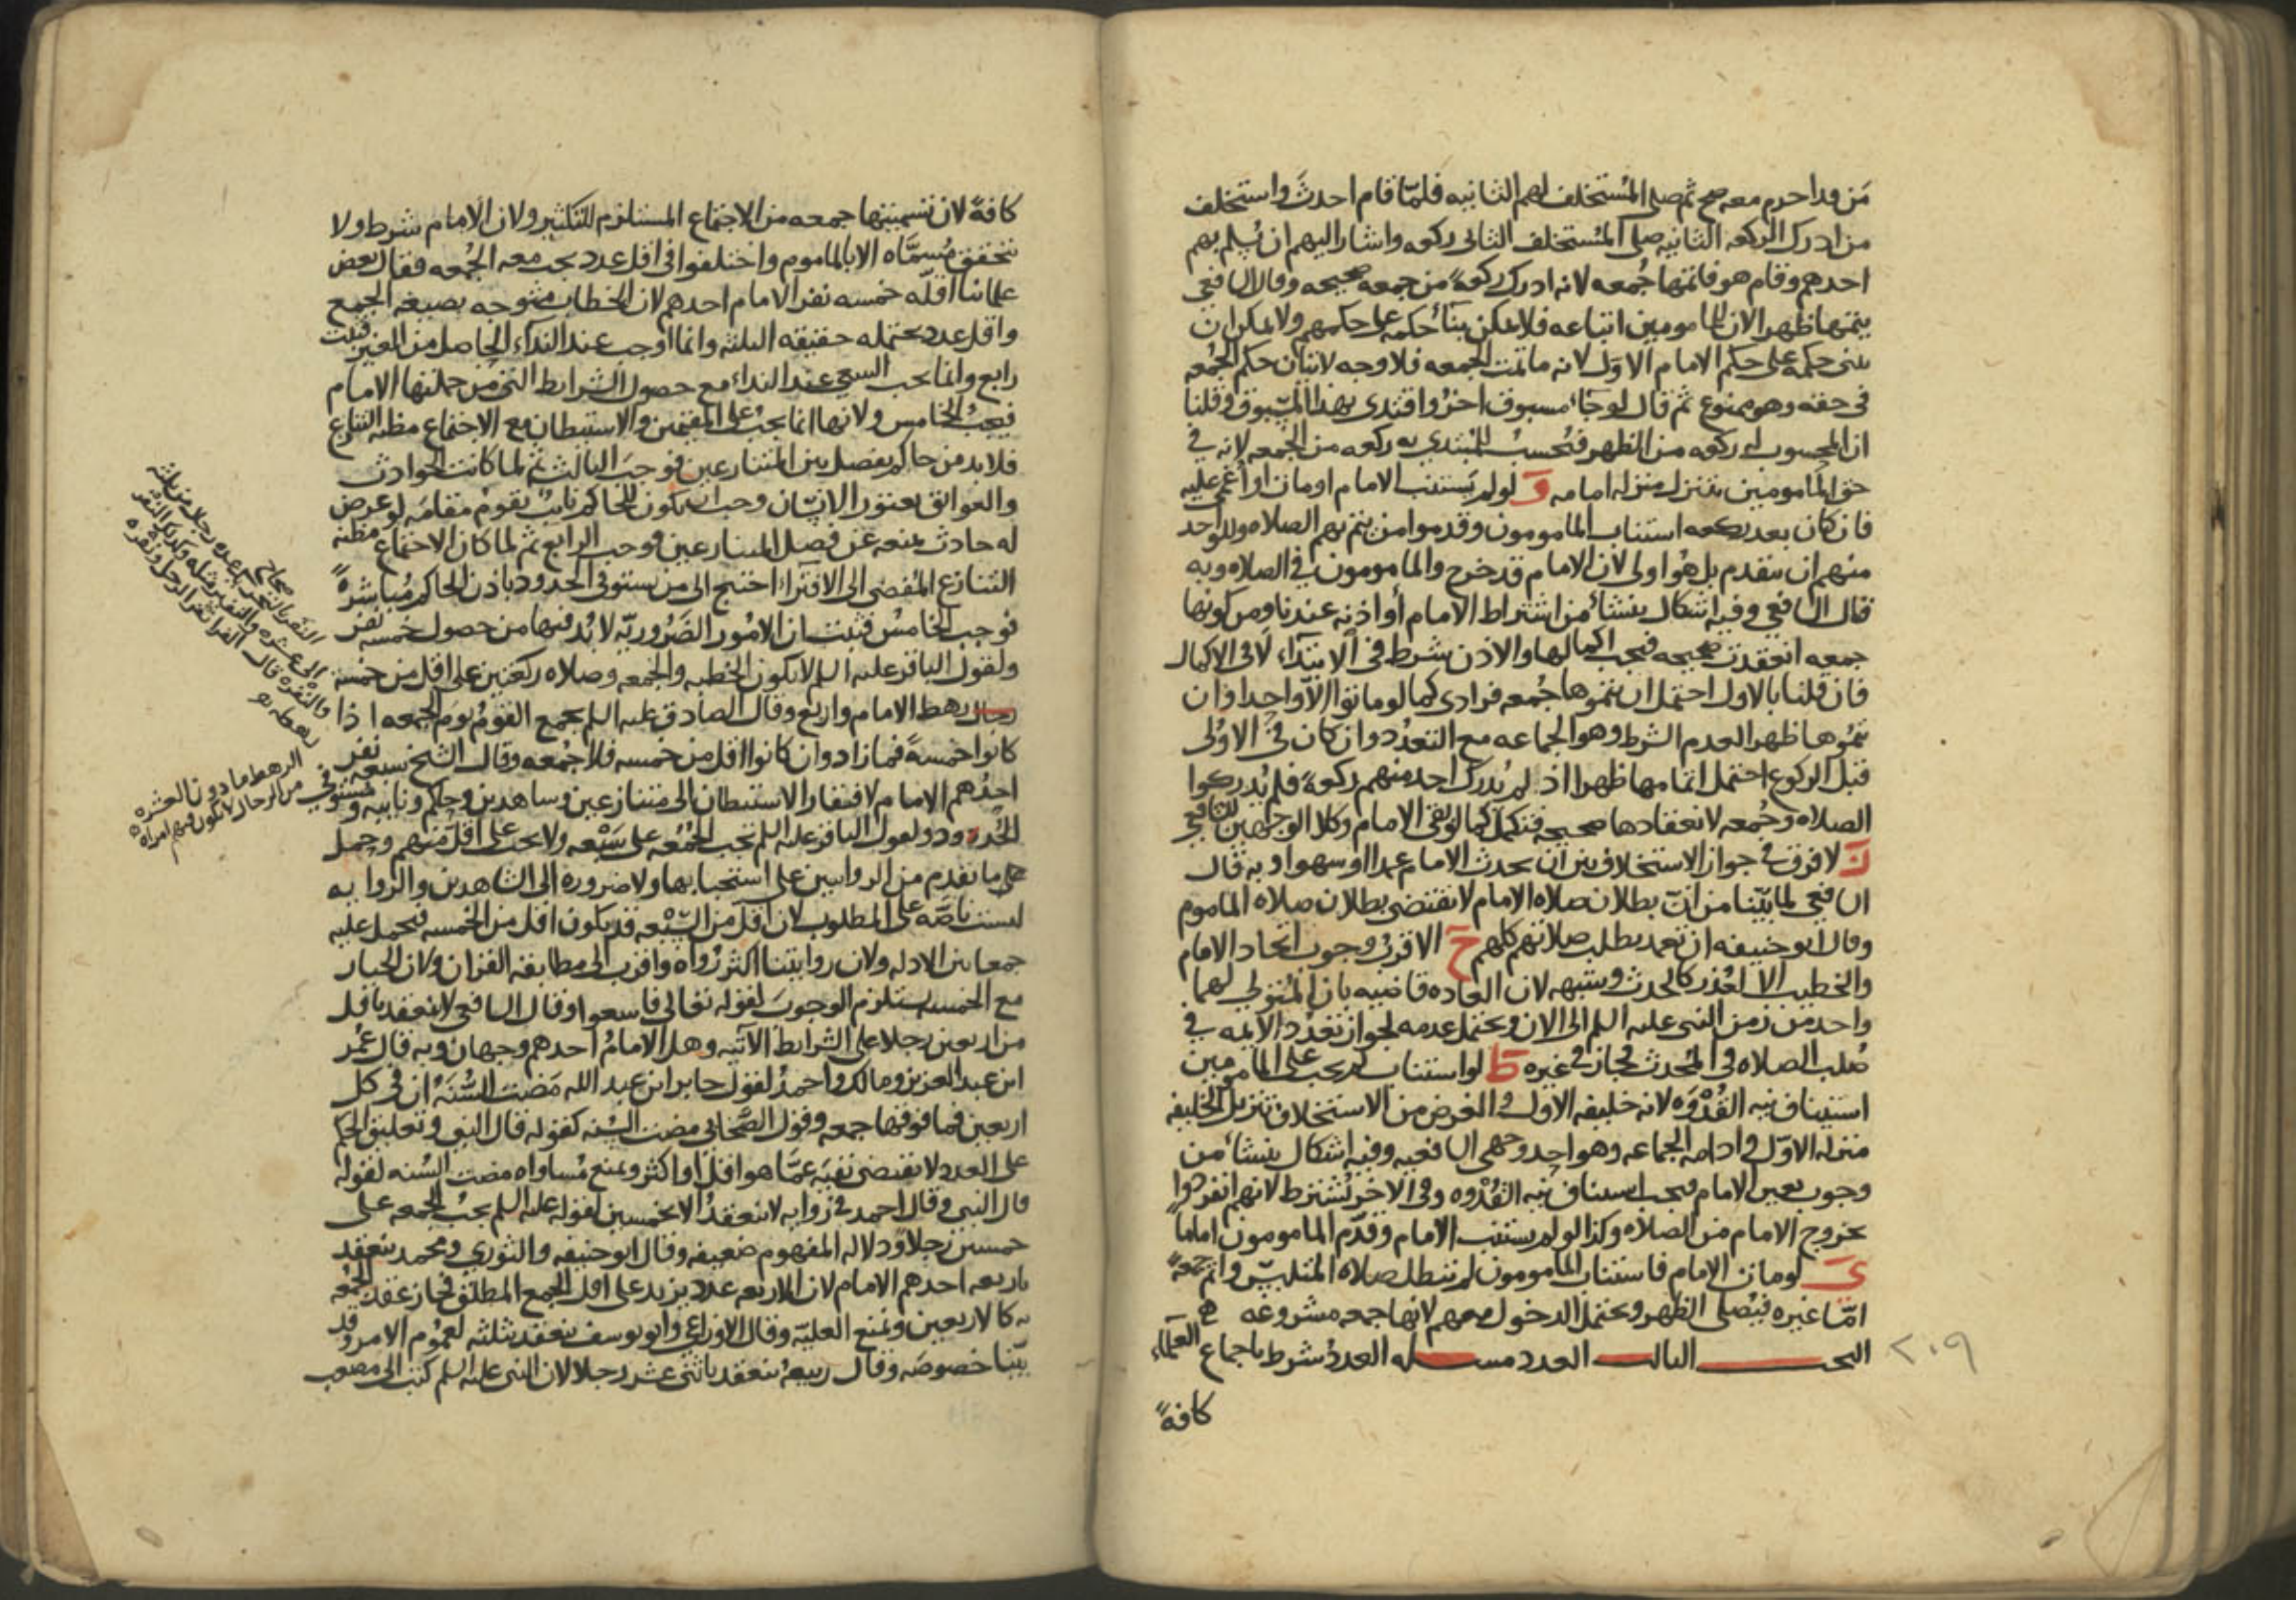 مَن قد احرم معه صح ثم صلى المُستخلف لهم الثانيه فلمّا قام احدثَ واستخلف
من ادرك الركعه الثانيه صلى المُستخلف الثانى ركعه واشار اليهم ان يُسلم بهم
احدهم وقام هو فاتمّها جُمعه لانه ادرك ركعهً من جمعه صحيحه وقال الشافعى
يتمّها ظهرا لان للمامومين اتباعه فلا يمكن بنآء حكمه على حكمهم ولا يمكن ان
يبنى حكمه على حكم الامام الاوّل لانه ما تمت الجُمعه فلا وجه لاتيان حكم الجُمعه
فى حقه وهو ممنوع ثم قال لو جآء مسبوق اخرُ واقتدى بهذا المسبوق وقلنا
ان المحسوب له ركعه من الظهر فتُحسبُ للمبتدى به ركعه من الجمعه لانه فى
حق المامومين يتنزل منزله امامه وَ لو لم يستنب الامام او مات او اُغمى عليه
فان كان بعد ركعه استناب المامومون وقدموا من يتم بهم الصلاه وللواحد
منهم ان يتقدم بل هُو اولى لان الامام قد خرج والمامومون فى الصلاه وبه
قال الشافعى وفيه اشكال ينشأ من اشتراط الامام أو اذنه عندنا ومن كونها
جمعه انعقدت صحيحه فيجب اكمالها والاذن شرط فى الابتدآء لا فى الاكمال
فان قلنا بالاول احتمل ان يتموها جُمعه فرادى كما لو ماتوا الّا واحدا وان
يتمُّوها ظهرا لعدم الشرط وهو الجماعه مع التعدُّد وان كان فى الاولى
قبل الركوع احتمل اتمامها ظهرا اذ لم يُدرك احد منهم ركعهً فلم يُدركوا
الصلاه وجُمعه لانعقادها صحيحه فتكمل كما لو بقى الامام وكلا الوجهين للشافعى
زَ لا فرق فى جواز الاستخلاف بين ان يحدث الامام عمدا او سهوا وبه قال
الشافعى لما بيّنا من انّ بطلان صلاه الامام لا تقتضى بطلان صلاه الماموم
وقال ابو حنيفه ان تعمد بطلت صلاتهم كلهم حَ الاقربُ وجوب اتحاد الامام
والخطيب الا لعُذر كالحدث وشبهه لان العاده قاضيه بان المُتولى لهما
واحد من زمن النبى عليه السلم الى الان ويحتمل عدمه لجواز تعدُّد الائمه فى
صُلب الصلاه فى المُحدث فجاز فى غيره طَ لو استناب لم يجب على المامومين
استيناف نيه القُدوَه لانه خليفه الاول والغرض من الاستخلاف تنزيل الخليفه
منزله الاوّل فى ادامه الجماعه وهو احد وجهى الشافعيه وفيه اشكال ينشأ من
وجوب تعيين الامام فيجب استيناف نيه القُدْوه وفى الاخر يُشترط لانهم انفردوا
بخروج الامام من الصلاه وكذا لو لم يستنب الامام وقدّم المامومون اماماً
ىَ لو مات الامام فاستناب المامومون لم تبطل صلاه المتلبّس واتم جمعهً
امّا غيره فيُصلى الظهر ويحتمل الدخول معهم لانها جمعه مشروعه
البحـــث الثالث العدد مسـله العددُ شرط باجماع العلمآء
كافةً
٢٠٩
كافةً لان تسميتها جمعه من الاجتماع المستلزم للتكثير ولان الامام شرط ولا
يتحقق مُسمَّاه الا بالماموم واختلفوا فى اقل عدد يجب معه الجُمعه فقال بعض
علمائنا اقلّه خمسه نفر الامام احدهم لان الخطاب متوجه بصيغه الجمع
واقل عدد يحتمله حقيقه الثلثه وانما اوجب عند الندآء الحاصل من الغير فثبت
رابع وانما يجب السعى عند النداء مع حصول الشرايط التى من جملتها الامام
فيجبُ الخامس ولانها انما يجبُ على المقيمين والاستيطان مع الاجتماع مظنه التنازع
فلا بد من حاكم يفصل بين المتنازعين فوجبَ الثالث ثم لما كانت الحوادث
والعوائق تعتور الانسان وجب ان يكون للحاكم نايبٌ يقومُ مقامَه لو عرض
له حادث يمنعه عن فصل المتنازعين فوجب الرابع ثم لما كان الاجتماع مظنه
التنازع المُفضى الى الافترآء احتيج الى من يستوفى الحدود باذن الحاكم مُباشرهً
فوجب الخامسُ فثبت ان الامُور الضَّروريّه لا بُد فيها من حصول خمسه نفر
ولقول الباقر عليه السلم لا يكون الخطبه والجمعه وصلاه ركعتين على اقل من خمسه
رهط الامام واربع وقال الصادق عليه السلم يجمع القومُ يومَ الجمعه اذا
كانوا خمسهً فما زاد وان كانوا اقل من خمسه فلا جُمعه وقال الشيخ سبعه نفر
احدُهم الامام لافتقار الاستيطان الى متنازعين وشاهدين وحاكم ونايبه ومستوفى
الحُدود ولقول الباقر عليه السلم تجب الجُمُعه على سَبْعه ولا يجب على اقلّ منهم وحمل
على ما تقدم من الروايتين على استحبابها ولا ضروره الى الشاهدين والروايه
ليست ناصّه على المطلوب لان اقل من السّبْعه قد يكون اقل من الخمسه فيحمل عليه
جمعا بين الادله ولان روايتنا اكثر رُواه واقرب الى مطابقه القران ولان الخيار
مع الخمسه يستلزم الوجوبَ لقوله تعالى فاسعوا وقال الشافعى لا ينعقد باقل
من اربعين رجلا على الشرايط الآتيه وهل الامامُ احدهم وجهان وبه قال عُمر
ابن عبد العزيز ومالك واحمدُ لقول جابر ابن عبد الله مَضت السُّنّهُ ان فى كل
اربعين فما فوقها جمعه وقول الصَّحابى مضت السُّنه كقوله قال النبى وتعليق الحكم
على العدد لا يقتضى نفيَه عمّا هو اقلّ او اكثر ونمنع مُساواه مضت السُّنه لقوله
قال النبى وقال احمد فى روايه لا ينعقدُ الا بخمسين لقوله عليه السلم يجبُ الجمعه على
خمسين رجلاً ودلاله المفهوم ضعيفه وقال ابو حنيفه والثورى ومحمد ينعقد
باربعه احدهم الامام لان الاربعه عدد يزيد على اقل الجمع المطلق فجاز عقد الجُمعه
به كالاربعين ونمنع العليّه وقال الاوزاعى وابو يوسف ينعقد بثلثه لعمُوم الامر وقد
بيّنّا خصوصَه وقال ربيعهُ ينعقد باثنى عشر رجلا لان النبى عليه السلم كتب الى مصعب
صحاح
النفر بالتحريك عدة رجال من ثلثه
الى عشره والنفير مثله وكذلك النفر
والنفره قال الفرا نفر الرجل ونفره
رهطه
الرهط ما دون العشره
من الرجال لا تكون فيهم امراه